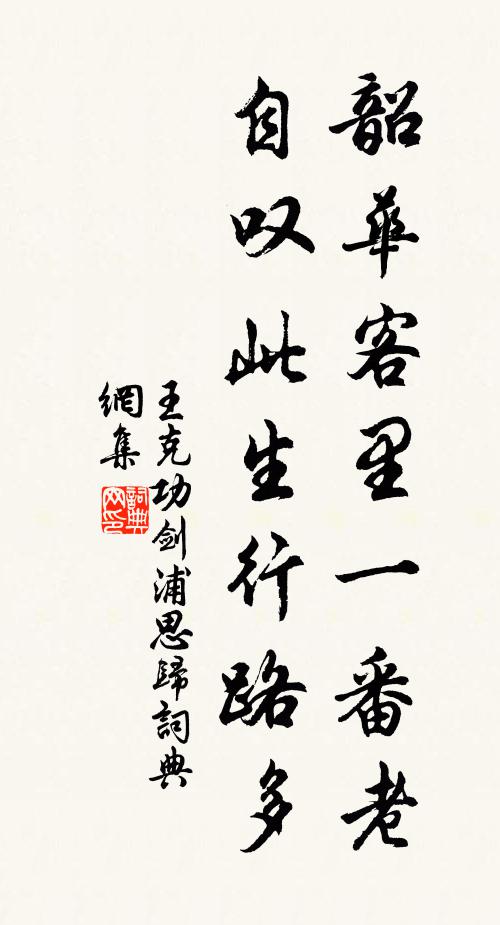 韶華客里一番老
自叹此生行路多
王克功剑浦思歸詞典
網集
詞典
网印